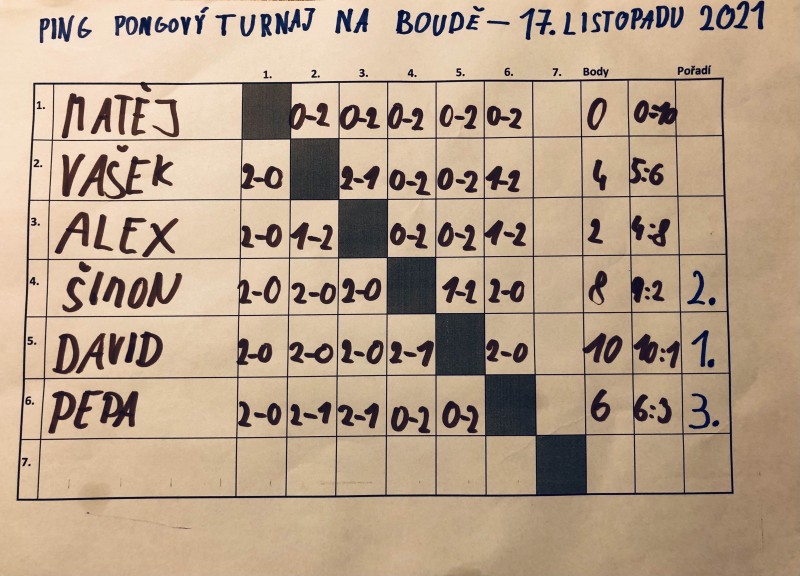 PING PONGOVÝ TURNAJ NA BOUDĚ – 17. LISTOPADU 2021
1. 2. 3. 4. 5. 6. 7. Body Pořadí
1. MATĚJ 0-2 0-2 0-2 0-2 0-2 0 0:10
2. VAŠEK 2-0 2-1 0-2 0-2 1-2 4 5:6
3. ALEX 2-0 1-2 0-2 0-2 1-2 2 4:8
4. ŠIMON 2-0 2-0 2-0 1-2 2-0 8 9:2 2.
5. DAVID 2-0 2-0 2-0 2-1 2-0 10 10:1 1.
6. PEPA 2-0 2-1 2-1 0-2 0-2 6 6:3 3.
7.